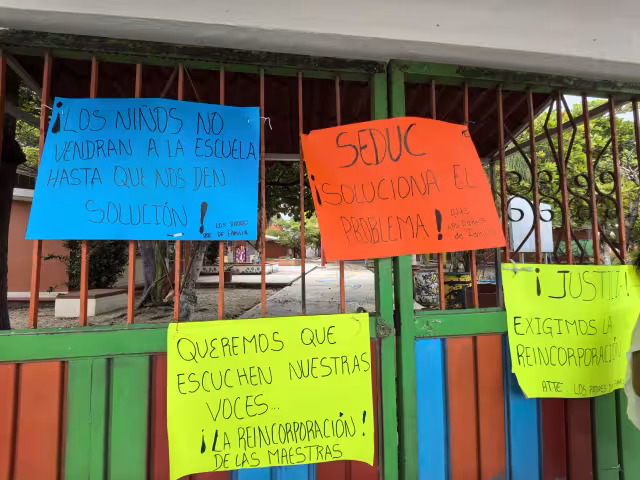 ¡LOS NIÑOS NO
VENDRAN A LA ESCUELA
HASTA QUE NOS DEN
SOLUCIÓN!
LOS PADRES
DE FAMILIA
SEDUC
¡SOLUCIONA EL
PROBLEMA!
ATTE
LOS PADRES
de Fam
QUEREMOS QUE
ESCUCHEN NUESTRAS
VOCES...
¡LA REINCORPORACIÓN!
DE LAS MAESTRAS
¡JUSTICIA!
EXIGIMOS LA
REINCORPORACIÓN
ATTE. LOS PADRES DE